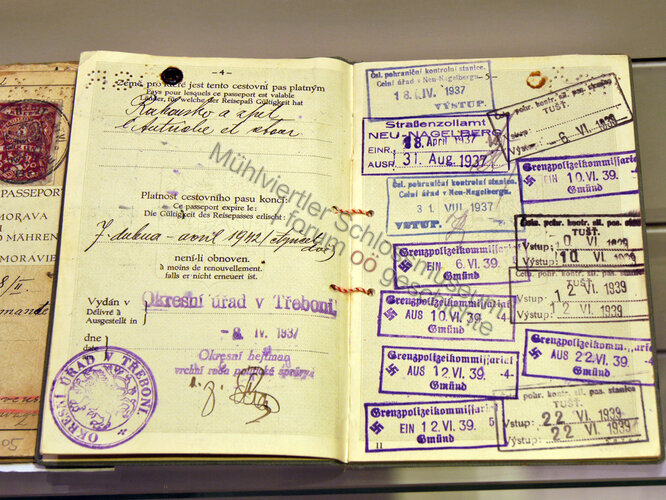 PASSEPORT
MORAVA
D MÄHREN
MORAVIE
8/II
— 4 —
Země, pro které jest tento cestovní pas platným
Pays pour lesquels ce passeport est valable
Länder, für welche der Reisepaß Gültigkeit hat
Rakousko a zpět
l'Autriche et retour
Platnost cestovního pasu končí:
Ce passeport expire le:
Die Gültigkeit des Reisepasses erlischt:
7. dubna - avril 1942
není-li obnoven.
à moins de renouvellement.
falls er nicht erneuert ist.
Vydán v
Délivré à
Ausgestellt in
Okresní úřad v Třeboni.
dne
date
- 8. IV. 1937
Okresní hejtman
vrchní rada politické správy
OKRESNÍ ÚŘAD V TŘEBONI
Čsl. pohraniční kontrolní stanice.
Celní úřad v Neu-Nagelbergu.
18. IV. 1937
VÝSTUP.
- 5 -
Straßenzollamt
NEU-NAGELBERG
EINR. 18. April 1937
AUSR. 31. Aug. 1937
Čsl. pohraniční kontrolní stanice.
Celní úřad v Neu-Nagelbergu.
31 VIII 1937
VSTUP.
Vstup:
Výstup: - 6. VI. 1939
Grenzpolizeikommissariat
EIN 10. VI. 39.
Gmünd
Grenzpolizeikommissariat
EIN 6. VI. 39.
Gmünd
pohr. kontr. sil. pas. stanice
TUŠŤ.
Vstup: 10. VI. 1939
Výstup: 10. VI. 1939
Grenzpolizeikommissariat
AUS 10. VI. 39.
Gmünd
pohr. kontr. sil. pas. stanice
TUŠŤ.
Vstup: 12. VI. 1939
Výstup: 12. VI. 1939
Grenzpolizeikommissariat
AUS 12. VI. 39. -4-
Gmünd
Grenzpolizeikommissariat
AUS 22. VI. 39. -4-
Gmünd
Grenzpolizeikommissariat
EIN 12. VI. 39. 5
Gmünd
pohr. kontr. sil. pas. stanice
TUŠŤ.
Vstup: 22. VI. 1939
Výstup: 22. VI. 1939
11
Mühlviertler Schlossmuseum
forum oö geschichte